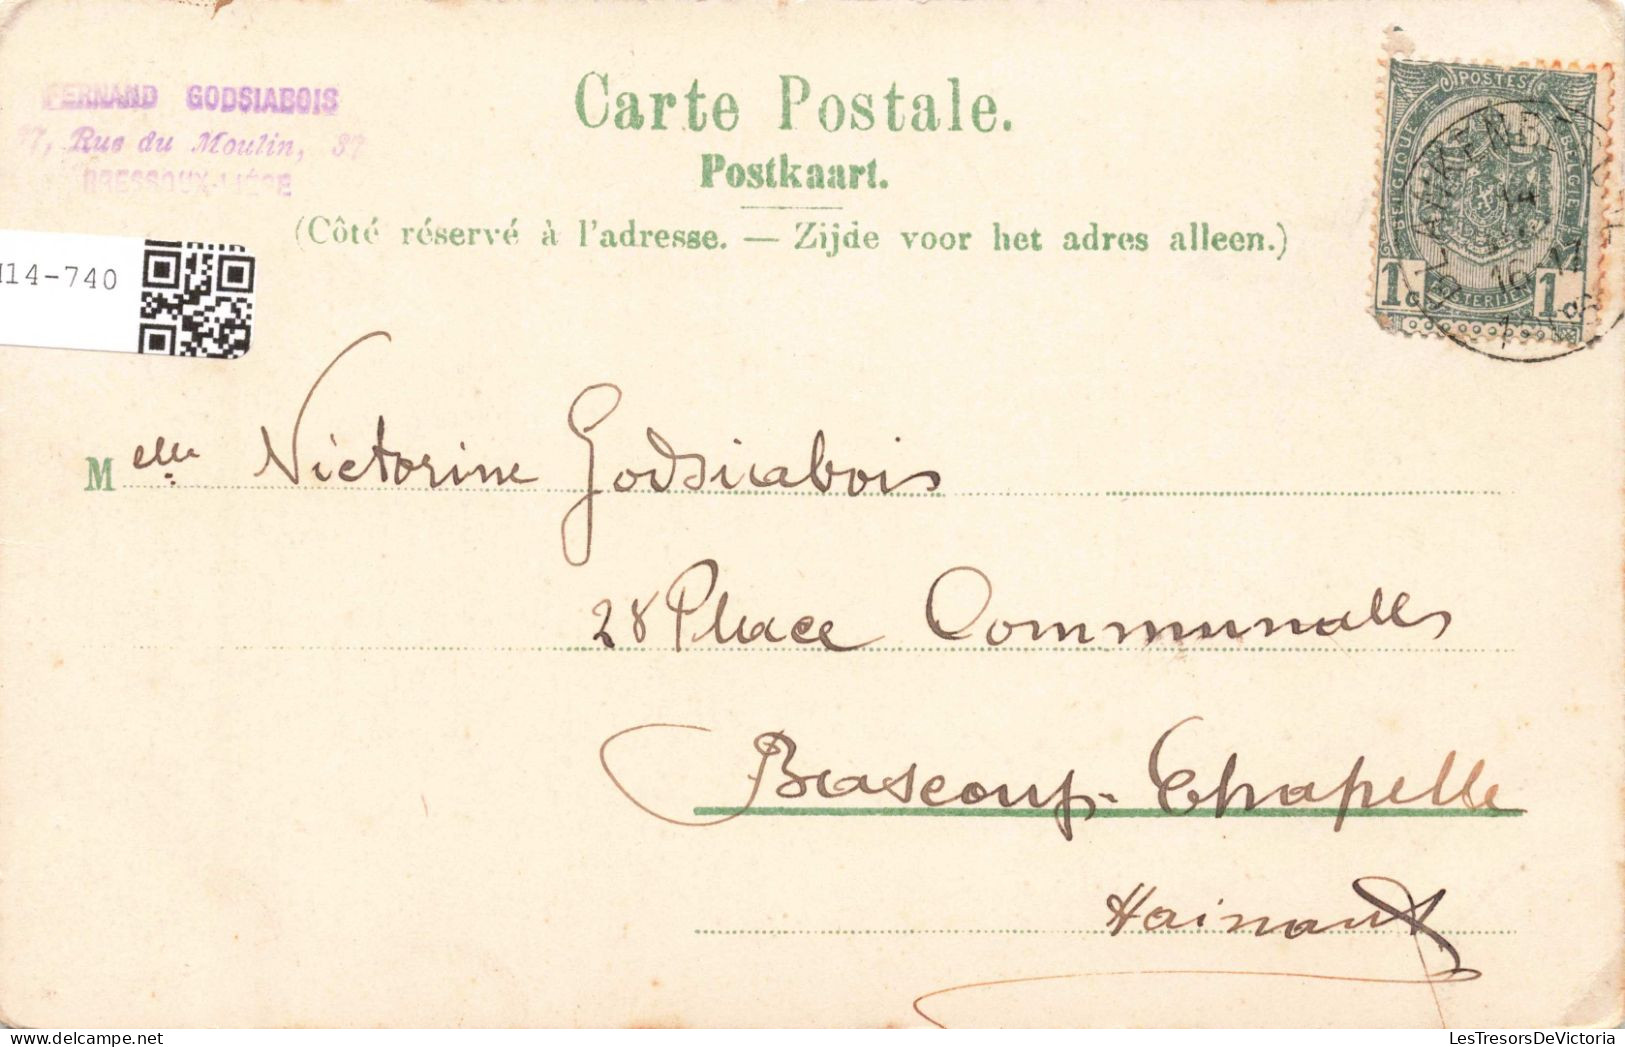 FERNAND GODSIABOIS
37, Rue du Moulin, 37
BRESSOUX-LIÉGE
Carte Postale.
Postkaart.
(Côté réservé à l'adresse. — Zijde voor het adres alleen.)
POSTES
BELGIQUE
BELGIË
1c 1c
POSTERIJEN
14-740
Melle Victorine Godsiabois
28 Place Communalle
Bascoup-Chapelle
Hainaut
LesTresorsDeVictoria